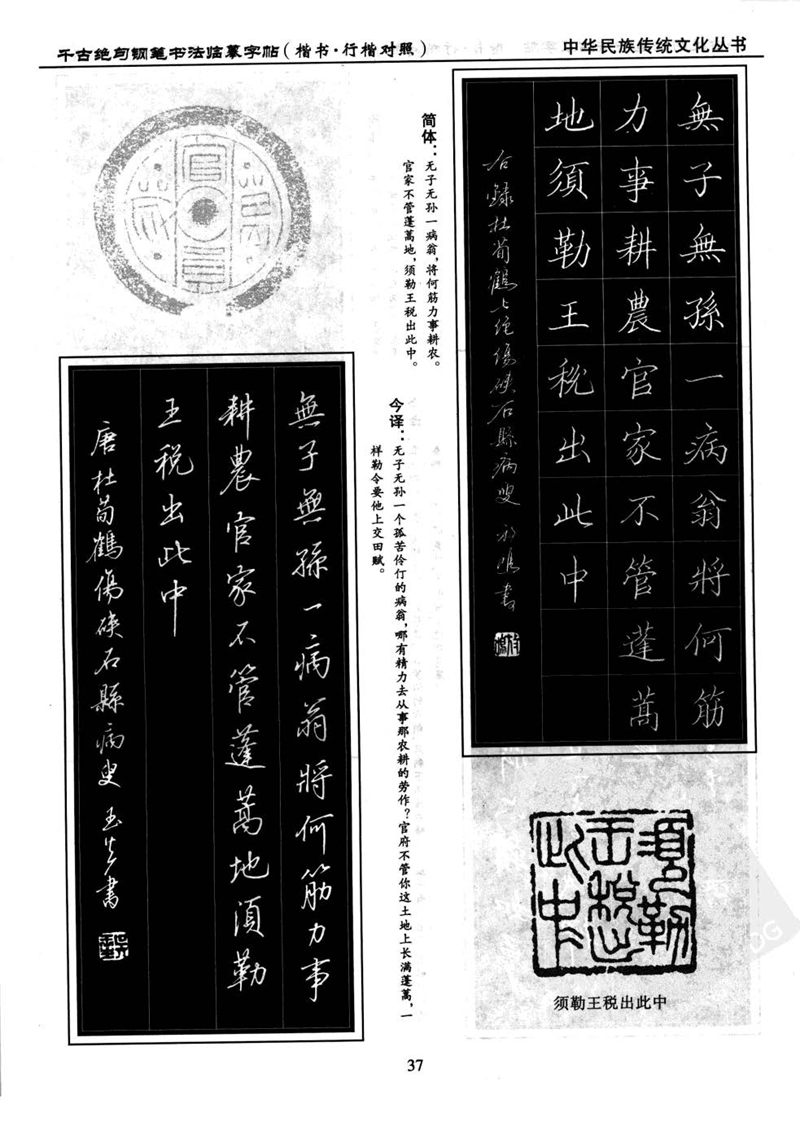 千古绝句钢笔书法临摹字帖（楷书·行楷对照）
中华民族传统文化丛书
無子無孫一病翁將何筋
力事耕農官家不管蓬蒿
地須勒王税出此中
右録杜荀鶴七绝傷硤石縣病叟
简体：无子无孙一病翁，将何筋力事耕农。
官家不管蓬蒿地，须勒王税出此中。
今译：无子无孙一个孤苦伶仃的病翁，哪有精力去从事那农耕的劳作？官府不管你这土地上长满蓬蒿，一
样勒令要他上交田赋。
無子無孫一病翁將何筋力事
耕農官家不管蓬蒿地須勒
王税出此中
唐杜荀鶴傷硤石縣病叟
須勒
王税出
此中
须勒王税出此中
37